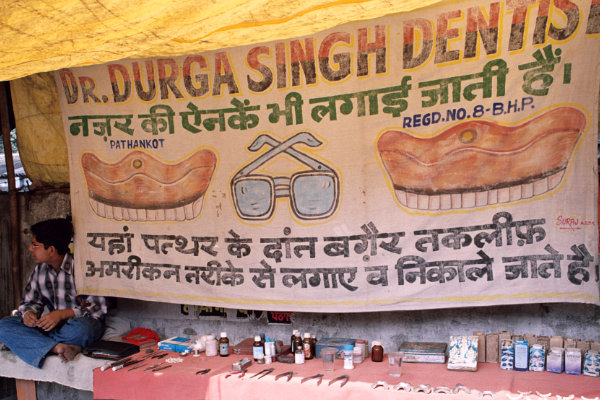 DR. DURGA SINGH DENTIS
नज़र की ऐनकें भी लगाई जाती हैं।
PATHANKOT
REGD. NO. 8-B.H.P.
SURAJ
यहां पत्थर के दांत बग़ैर तकलीफ़
अमरीकन तरीके से लगाए व निकाले जाते है